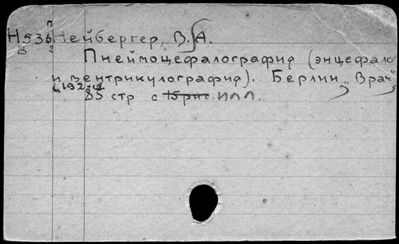 п
Н536 Нейбергер, В. А.
Б 2
Пнеймоцефалография (энцефало-
и вентрикулография). Берлин „Врач"
85 стр с 15 рис. илл.